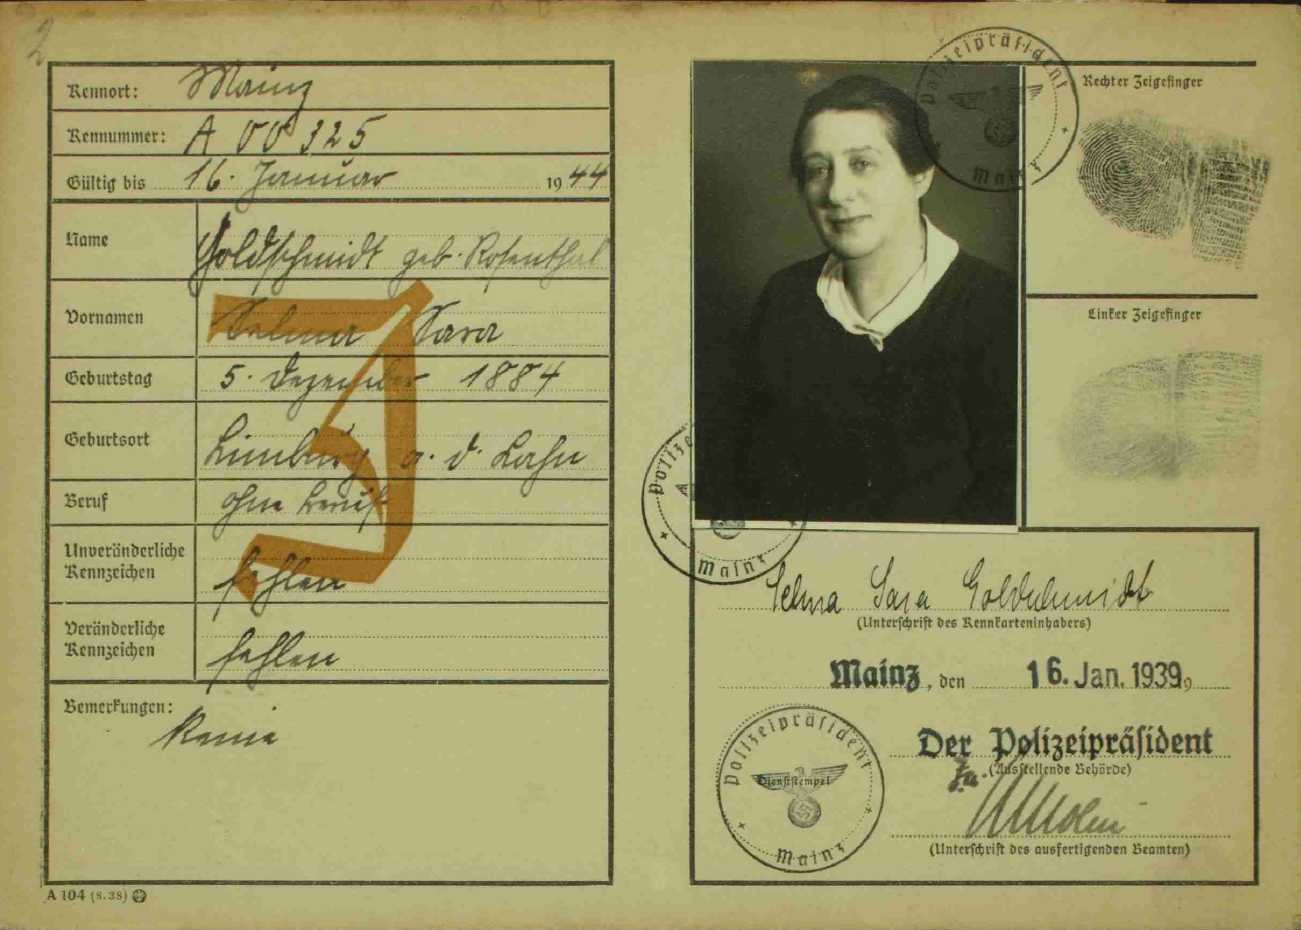 2
Kennort: Mainz
Kennummer: A 00325
Gültig bis 16. Januar 1944
Name Goldschmidt geb. Rosenthal
Vornamen Selma Sara
Geburtstag 5. Dezember 1884
Geburtsort Limburg a. d. Lahn
Beruf ohne Beruf
Unveränderliche
Kennzeichen fehlen
Veränderliche
Kennzeichen fehlen
Bemerkungen:
Keine
J
A 104 (8. 38)
Polizeipräsident
Mainz
Rechter Zeigefinger
Linker Zeigefinger
Mainz
Selma Sara Goldschmidt
(Unterschrift des Kennkarteninhabers)
Mainz, den 16. Jan. 1939
Polizeipräsident
Dienststempel
Mainz
Der Polizeipräsident
(Ausstellende Behörde)
(Unterschrift des ausfertigenden Beamten)